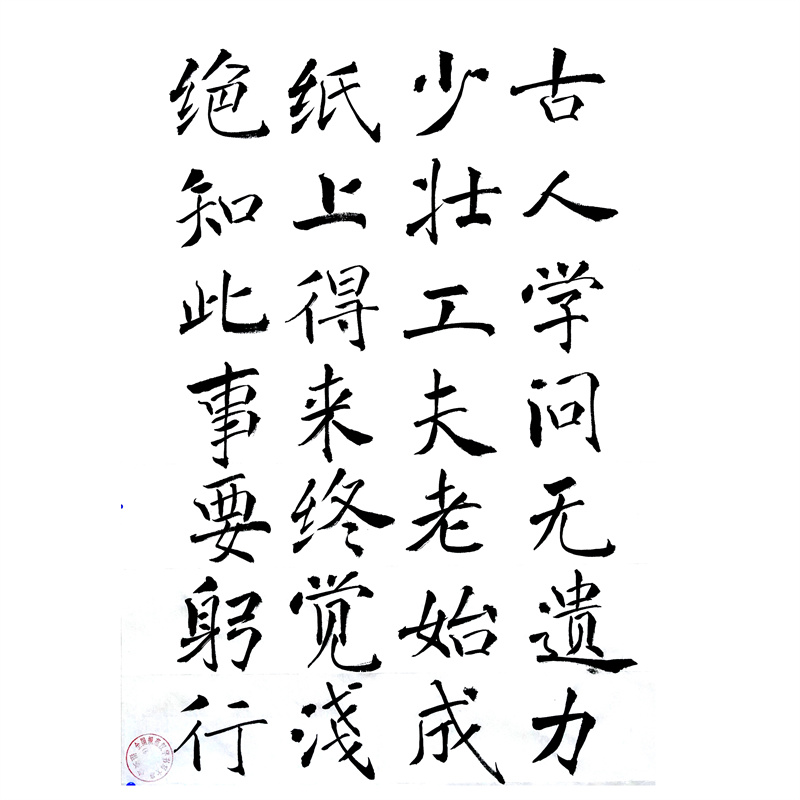 古人学问无遗力
少壮工夫老始成
纸上得来终觉淺
绝知此事要躬行